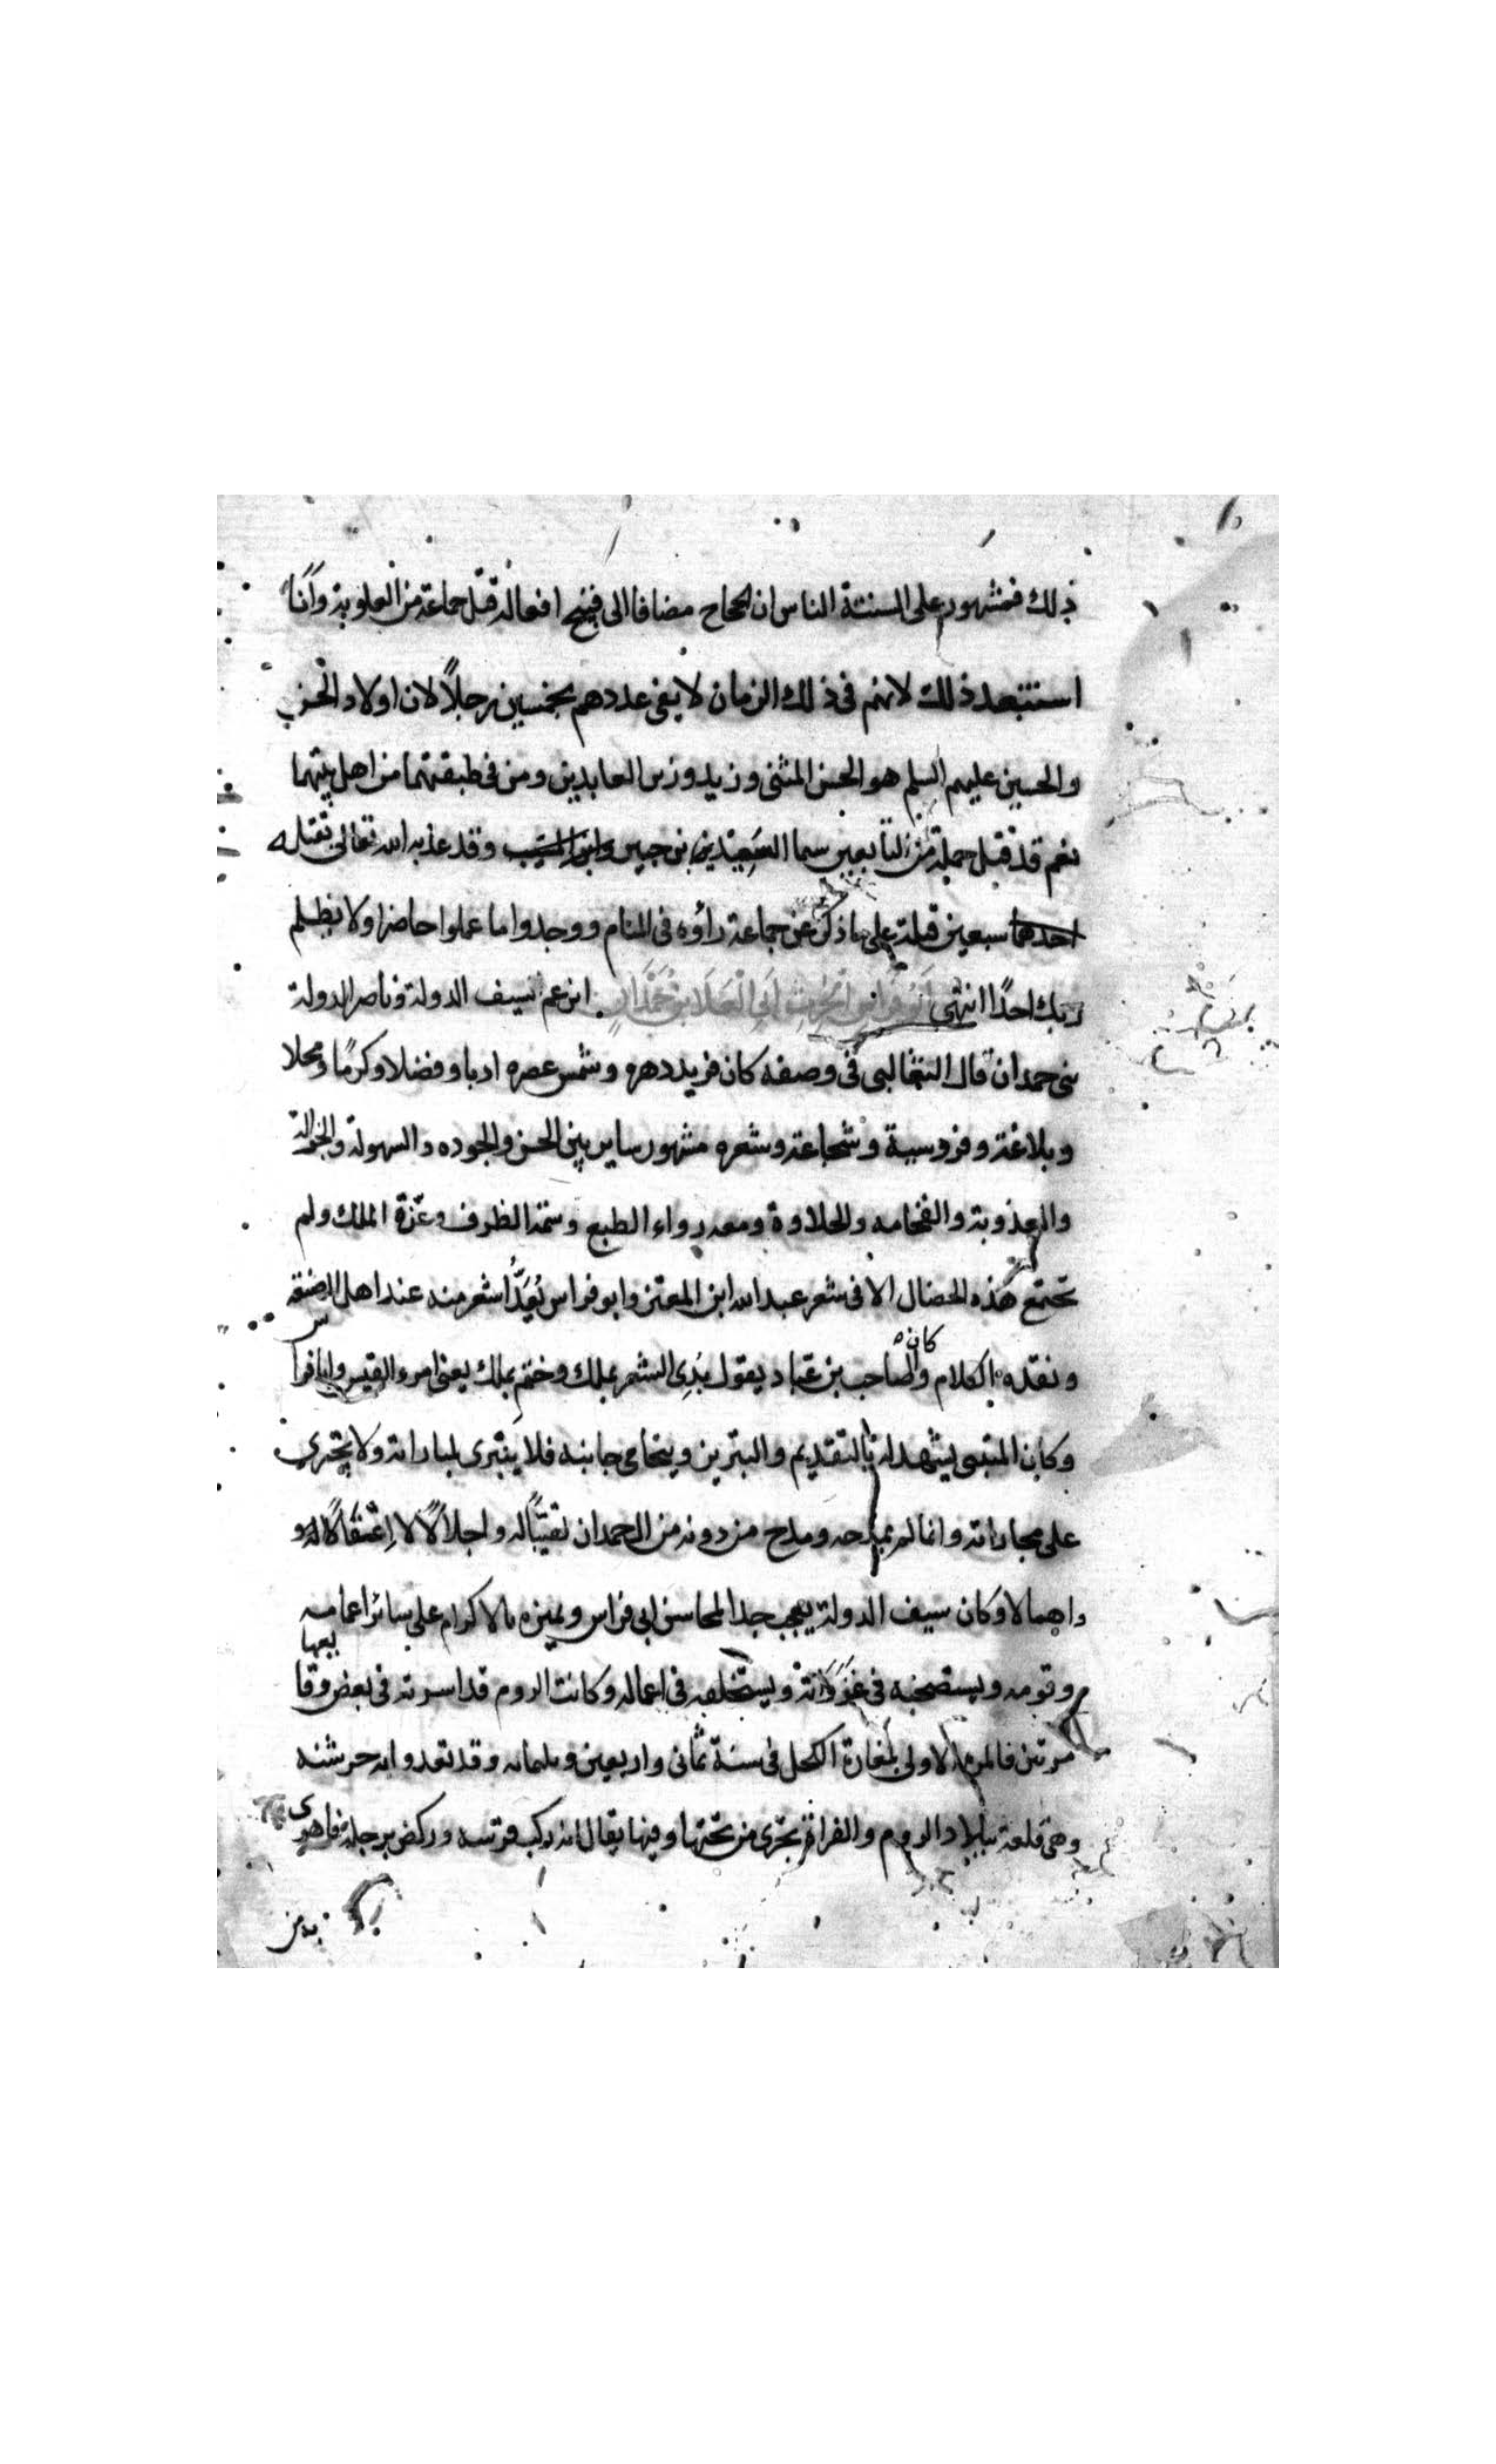 ذلك فمشهور على السنتة الناس ان الحجاج مضافا الى قبيح افعاله قتل جماعة من العلوية وانا
استبعد ذلك لانهم فى ذلك الزمان لا يفى عددهم بخمسين رجلاً لان اولاد الحسن
والحسين عليهم السلم هو الحسن المثنى وزيد وزين العابدين ومن فى طبقتهما من اهل بيتهما
نعم قد قتل جملة من التابعين سما السعيدين بن جبير وابن المسيب وقد عذبه الله تعالى بقتله
احدهما سبعين قتلة على ما ذكر عن جماعة رأوه فى المنام ووجدوا ما عملوا حاضرا ولا يظلم
ربك احدًا انتهى ابو فراس الحرث ابى العلا بن حمدان ابن عم سيف الدولة وناصر الدولة
بنى حمدان قال الثعالبى فى وصفه كان فريد دهره وشمس عصره ادبا وفضلا وكرمًا ومجلا
وبلاغة وفروسية وشجاعة وشعره مشهور ساير بين الحسن والجوده والسهولة والجزالة
والعذوبة والفخامه والحلاوة ومعه رواء الطبع وسمة الظرف وعزة الملك ولم
تجتمع هذه الخصال الا فى شعر عبد الله ابن المعتز وابو فراس يُعَدُّ اشعر منه عند اهل الصنعة
ونقده الكلام وكان الصاحب بن عباد يقول بُدِى الشعر بملك وختم بملك يعنى امرء القيس وابا فراس
وكان المتنبى يشهد له بالتقديم والتبريز ويتحامى جانبه فلا ينبرى لمباراته ولا يجترى
على مجاراته وانما لم يمدحه ومدح من دونه من ال حمدان تهيبًا له واجلالًا لا اغفالًا له و
واهمالا وكان سيف الدولة يعجب جدا بمحاسن ابى فراس ويميزه بالاكرام على سائر اعمامه
وقومه ويستصحبه فى غزواته ويستخلفه فى اعماله وكانت الروم قد اسرته فى بعض وقايعها
مرتين فالمرة الاولى بمغارة الكحل فى سنة ثمانى واربعين وثلمائه وقد تعدوا به خرشنه
وهى قلعة ببلاد الروم والفراة تجرى من تحتها وفيها يقال انه ركب فرسه وركض برجله فاهوى
به من